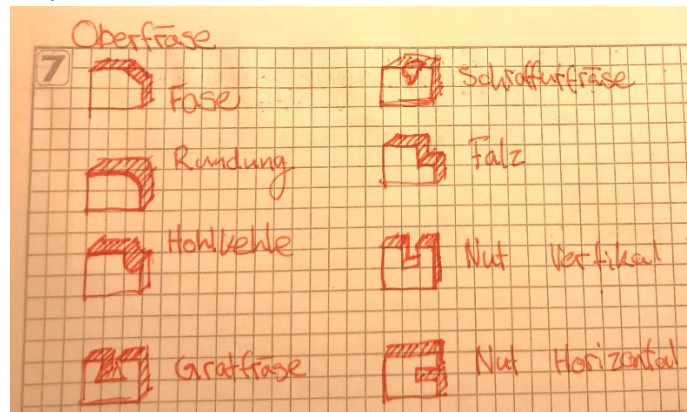 Oberfräse
7
Fase
Rundung
Hohlkehle
Gratfräse
Schraffurfräse
Falz
Nut Vertikal
Nut Horizontal